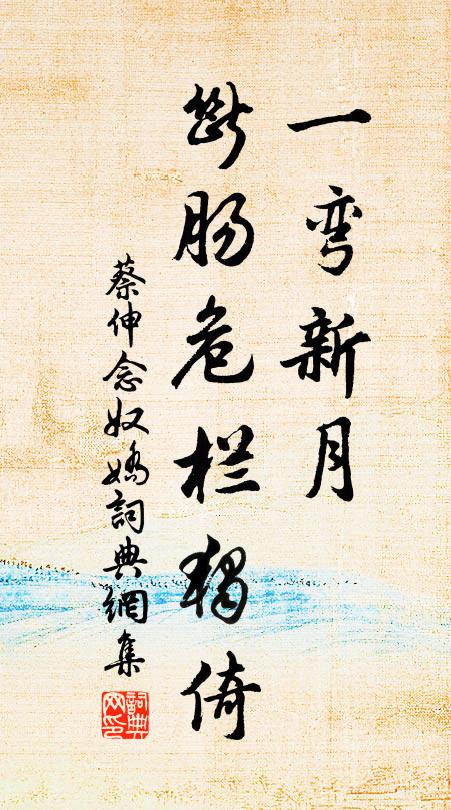 一弯新月
断肠危栏独倚
蔡伸念奴娇詞典網集
詞典网印